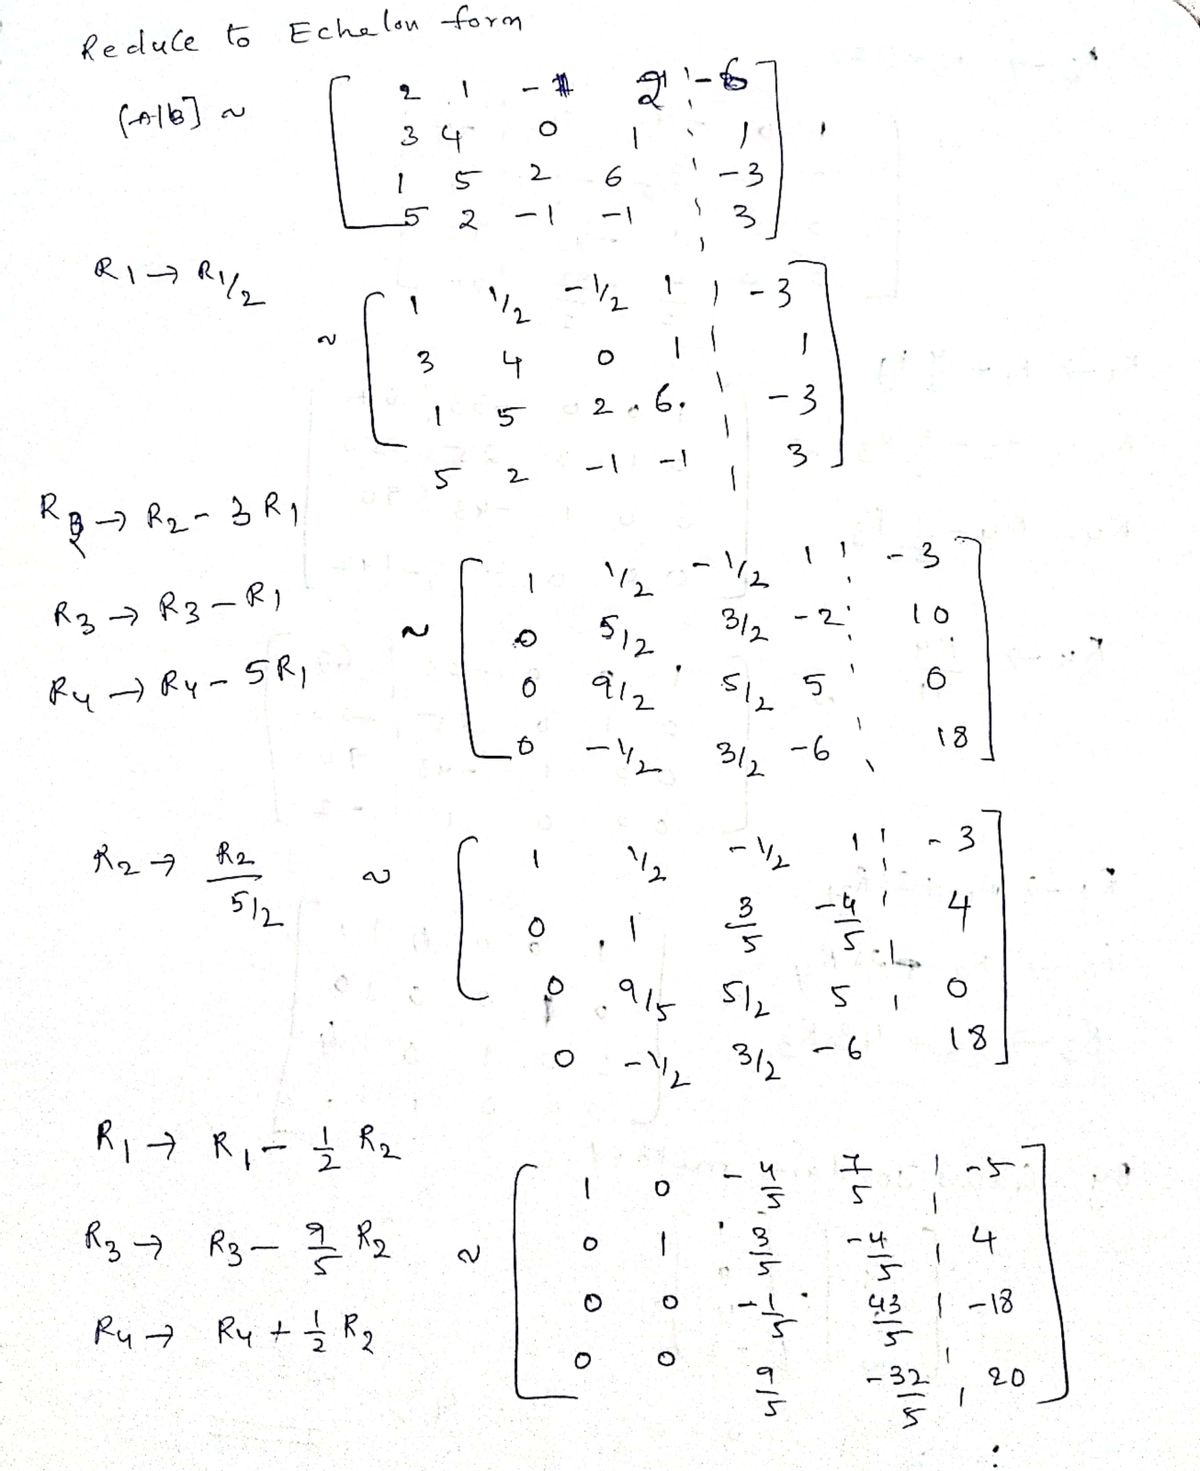 Reduce to Echelon form
[A|b] ~
2 1 -1 2 | -6
3 4 0 1 | 1
1 5 2 6 | -3
5 2 -1 -1 | 3
R1 → R1/2
~ 1 1/2 -1/2 1 | -3
3 4 0 1 | 1
1 5 2 6 | -3
5 2 -1 -1 | 3
R2 → R2 - 3R1
R3 → R3 - R1
R4 → R4 - 5R1
~ 1 1/2 -1/2 1 | -3
0 5/2 3/2 -2 | 10
0 9/2 5/2 5 | 0
0 -1/2 3/2 -6 | 18
R2 → R2/5/2
~ 1 1/2 -1/2 1 | -3
0 1 3/5 -4/5 | 4
0 9/5 5/2 5 | 0
0 -1/2 3/2 -6 18
R1 → R1 - 1/2 R2
R3 → R3 - 9/5 R2
R4 → R4 + 1/2 R2
~ 1 0 -4/5 7/5 | -5
0 1 3/5 -4/5 | 4
0 0 -1/5 43/5 | -18
0 0 9/5 -32/5 | 20